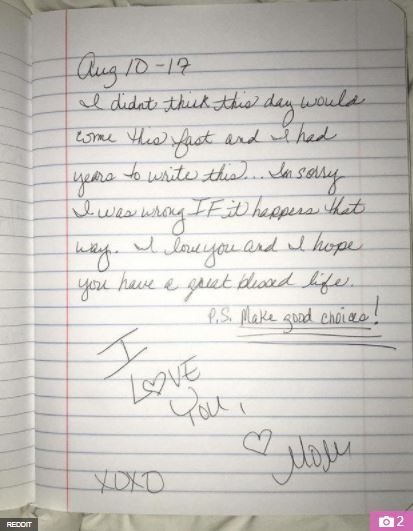 Aug 10-17
I didnt think this day would
come this fast and I had
years to write this... Im sorry
I was wrong IF it happens that
way. I love you and I hope
you have a great blessed life.
P.S. Make good choices!
I
L♡VE
You,
♡ Mom
XOXO
REDDIT
2